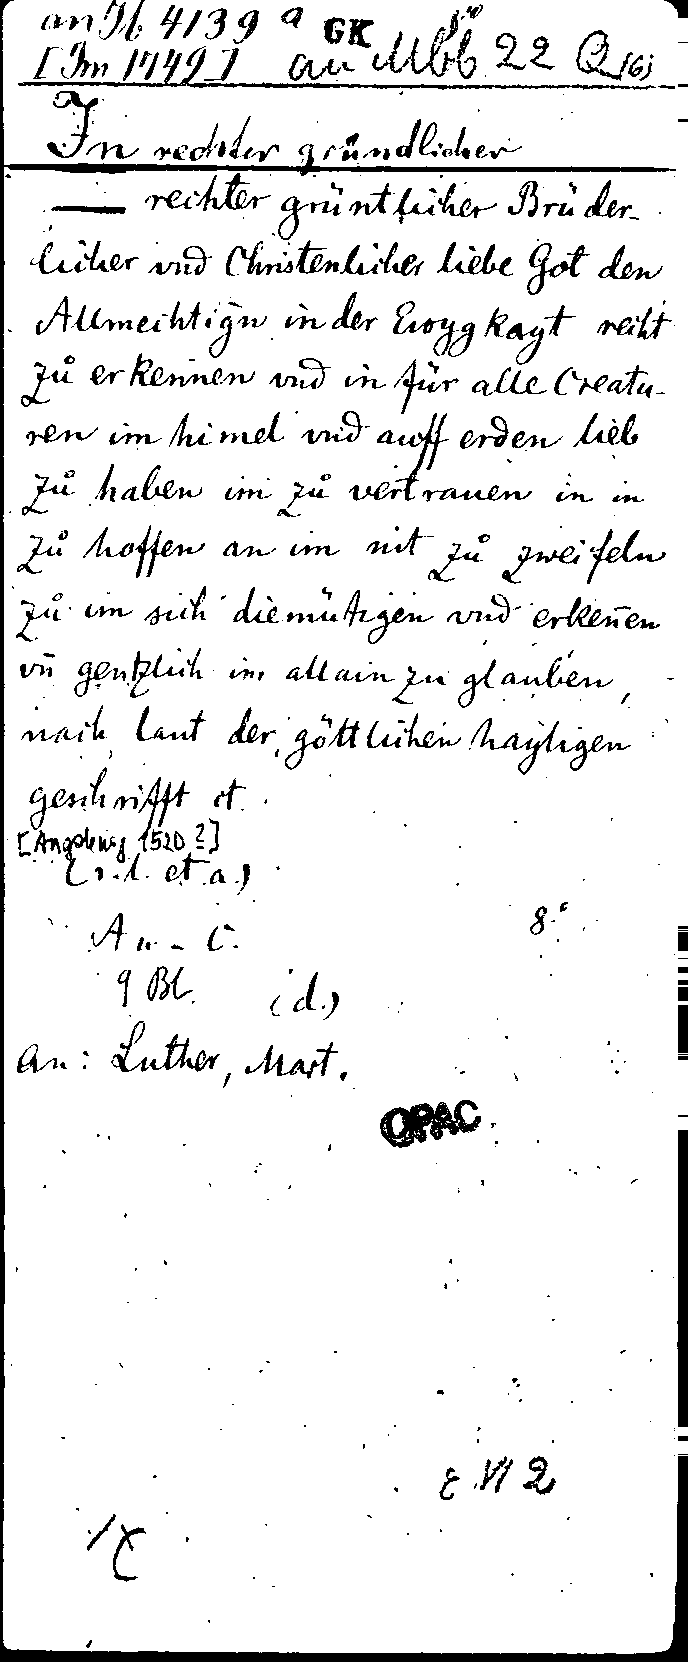 an If 4139 a GK 8°
[Im 1749] an Mbb 22 Q (6)
In rechter gründlicher
— rechter grüntlicher Brüder-
licher vnd Christenlicher liebe Got den
Allmechtigñ in der Ewygkayt recht
zů erkennen vnd in für alle Creatu-
ren im himel vnd auff erden lieb
zů haben im zů vertrauen in in
zů hoffen an im nit zů zweifeln
zů im sich diemütigen vnd erkeñen
vñ gentzlich im allain zu glauben,
nach laut der göttlichen hayligen
geschrifft et.
[Augsburg 1520?]
(s. l. et a.)
A 11 - C. 8.°
9 Bl. (d.)
an: Luther, Mart.
OPAC
E VI 2